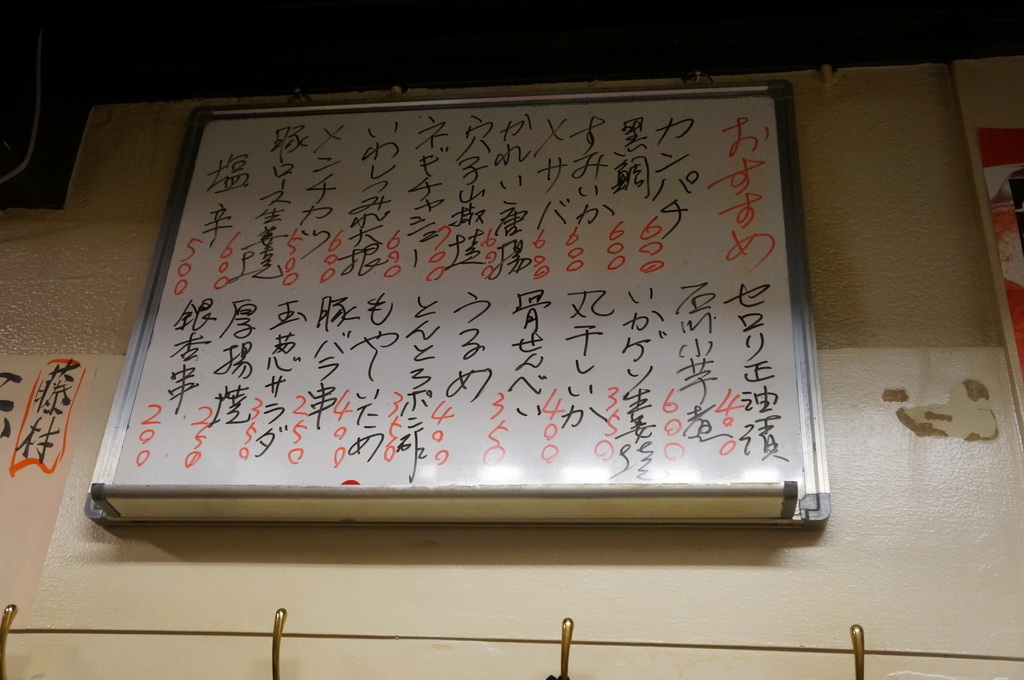 おすすめ
カンパチ 600
黒鯛 600
すみいか 600
〆サバ 600
かれい唐揚 600
穴子山椒焼 700
ネギチャンジャー 600
いわしつみれ大根 600
メンチカツ 500
豚ロース生姜焼 600
塩辛 500
セロリ正油漬 400
石川小芋煮 600
いかゲソ生姜焼 350
丸干しいか 400
骨せんべい 350
うるめ 400
とんとろポン酢 350
もやしいため 400
豚バラ串 250
玉葱サラダ 350
厚揚焼 250
銀杏串 200
藤村